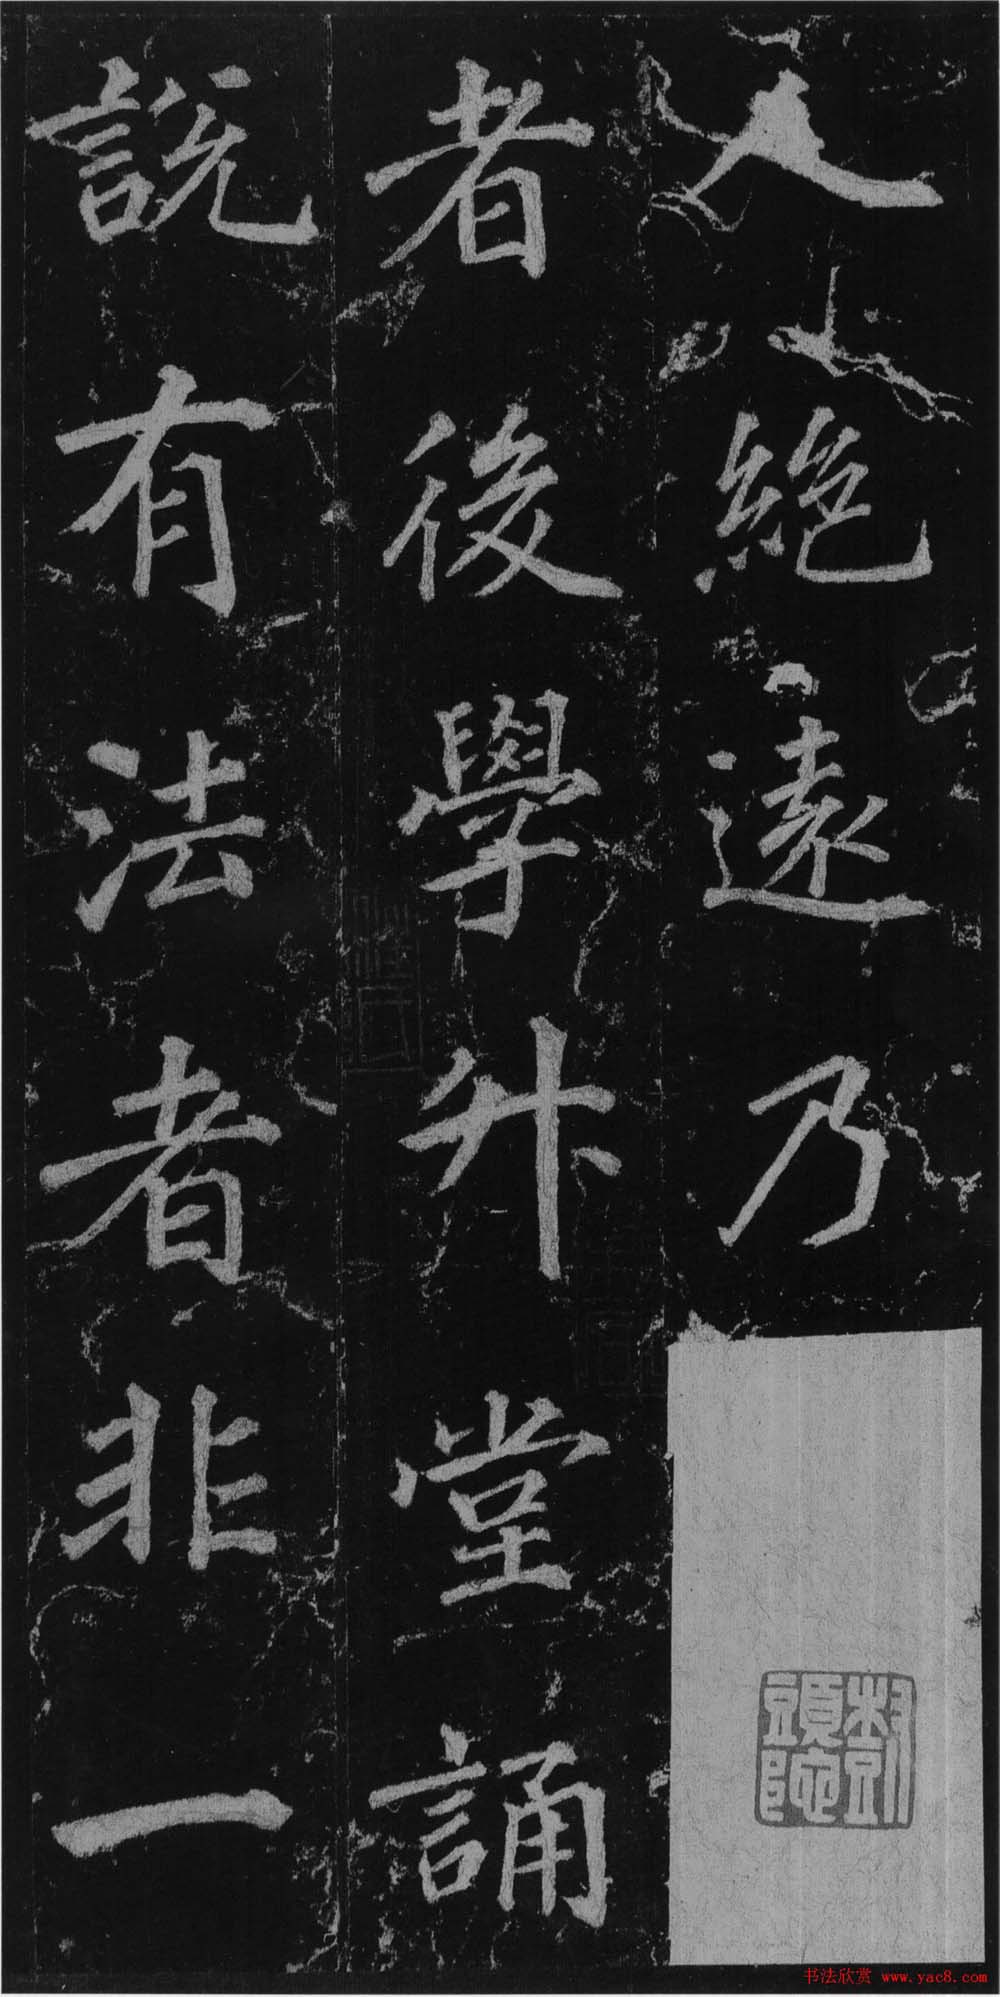 人絶遠乃
者後學升堂誦
說有法者非一
书法欣赏 www.yac8.com